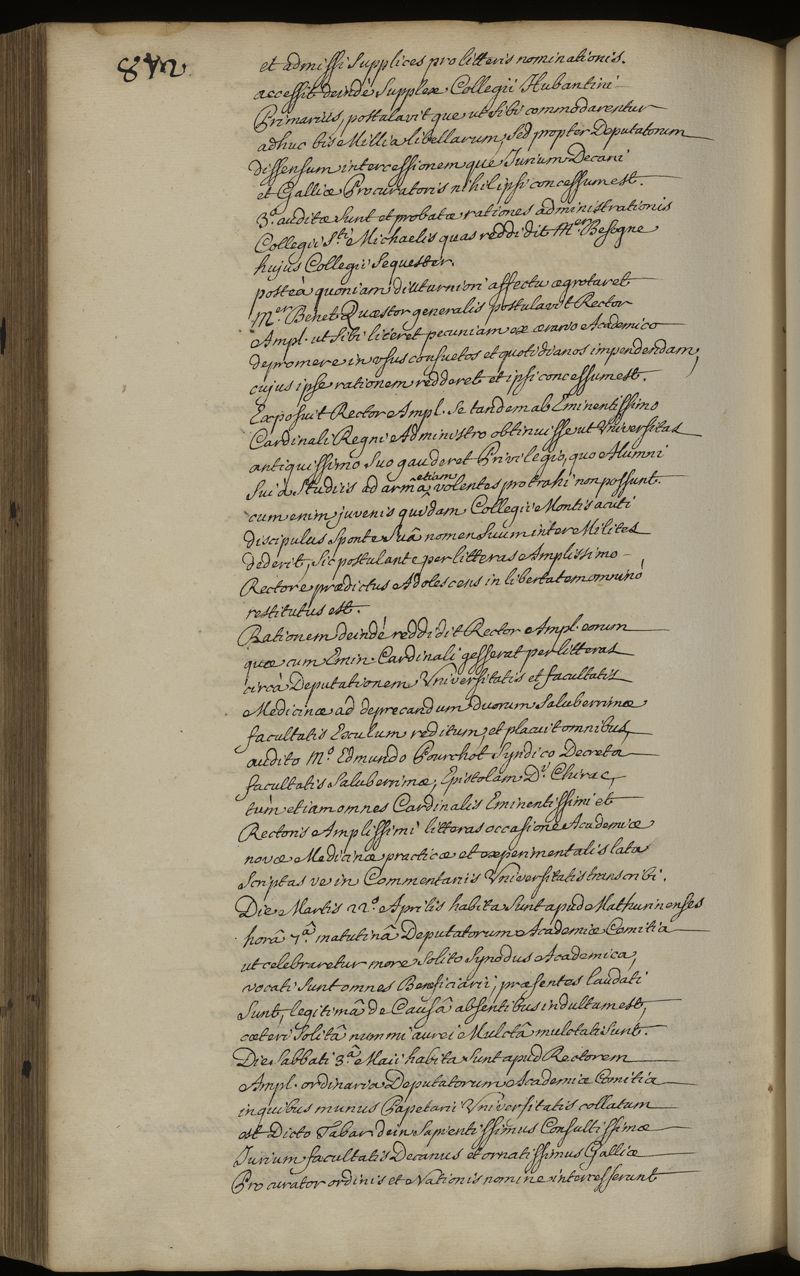 872
et admissi supplices pro litteris nominationis.
accessit deindè supplex Collegii Hubantini
Primarius, postulavit que ut sibi commodarentur
adhuc bis Millia libellarum, sed propter Deputatorum
dissensum intercessionem que Jurium Decani
et Galliæ Procuratoris nihil ipsi concessum est.
3.º auditæ sunt et probatæ rationes administrationis
Collegii S.ti Michaelis quas reddidit M.er Besogne
hujus Collegii sequester.
posteà quoniam diuturniori affectu ægrotaret
M.er Benet Quæstor generalis postulavit Rector
Ampl. ut sibi liceret pecuniam ex ærario Academico
depromere in usus consuetos et quotidianos impendendam,
cujus ipse rationem redderet et ipsi concessum est.
Exposuit Rector Ampl. se tandem ab Eminentissimo
Cardinali Regni Administro obtinuisse ut Universitas
antiquissimo suo gauderet Privilegio, quo Alumni
sui a studiis ad arma etiam volentes protrahi non possunt.
cum enim juvenis quidam Collegii Montis acuti
discipulus sponte suâ nomen suum inter Milites
dederit, sic postulante per litteras Amplissimo
Rectore prædictus Adolescens in libertatem omninò
restitutus est.
Rationem deindè reddidit Rector Ampl. eorum
quæ cum Emin. Cardinali gesserat per litteras
circà Deputationem Universitatis et facultatis
Medicinæ ad deprecandum duorum saluberrimæ
facultatis Exulum reditum, et placuit omnibus,
audito M.º Edmundo Pourchot Syndico Decreta
facultatis saluberrimæ, Epistolam D.i Chirac,
tùm etiam omnes Cardinalis Eminentissimi et
Rectoris Amplissimi litteras occasione Academiæ
novæ Medicinæ practicæ et experimentalis lata
scriptas ve in Commentariis Universitatis transcribi.
Die Martis 22.º Aprilis habita sunt apud Mathurinenses
horâ 7.â matutinâ Deputatorum Academiæ Comitia
ut celebraretur more solito synodus Academica,
vocati sunt omnes Beneficiarii, præsentes laudati
sunt, legitimâ de Causâ absentibus indultum est,
cæteri solitâ nummi aurei Mulctâ mulctati sunt.
Die Sabbati 3.â Maii habita sunt apud Rectorem
Ampl. ordinaria Deputatorum Academiæ Comitia
in quibus munus Papetarii Universitatis collatum
est Dicto Tabar dein sapientissimus Consultissimæ
Jurium facultatis Decanus et ornatissimus Galliæ
Procurator ordinis et Nationis nomine intercesserunt